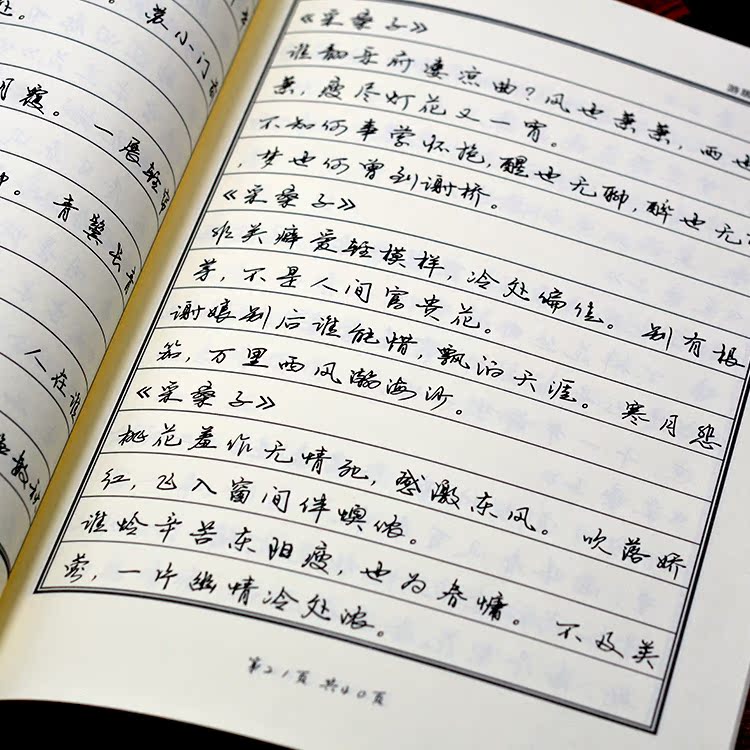 处。
小门
月霞。一展轻
青鬓长青
人在谁
《采桑子》
谁翻乐府凄凉曲？风也萧萧，雨也
萧，瘦尽灯花又一宵。
不知何事萦怀抱，醒也无聊，醉也无
，梦也何曾到谢桥。
《采桑子》
非关癖爱轻模样，冷处偏佳。别有根
芽，不是人间富贵花。
谢娘别后谁能惜，飘泊天涯。寒月悲
笳，万里西风瀚海沙。
《采桑子》
桃花羞作无情死，感激东风。吹落娇
红，飞入窗间伴懊侬。
谁怜辛苦东阳瘦，也为春慵。不及芙
蓉，一片幽情冷处浓。
第21页 共40页